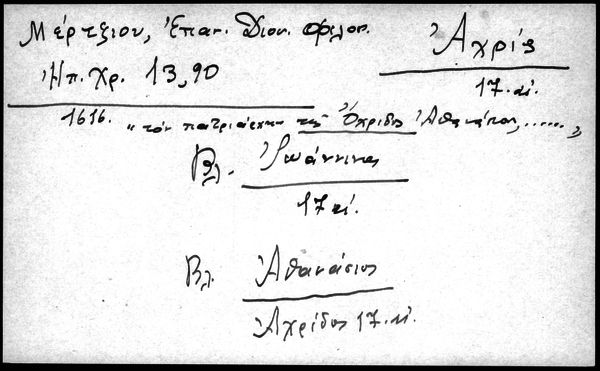 Μέρτζιου, Ἐπαν. Διον. Φιλοσ.
Ἀχρίς
Ἠπ. Χρ. 13, 90
17. αἰ.
1616. "τὸν πατριάρχην τῆς Ὀχρίδος Ἀθανάσιον, ......,"
Βλ. Ἰωάννινα
17 αἰ.
Βλ. Ἀθανάσιος
Ἀχρίδος 17. αἰ.